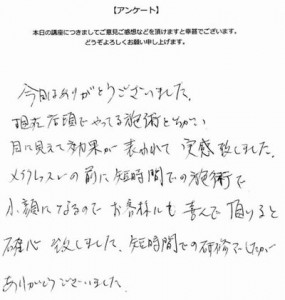 【アンケート】
本日の講座につきましてご意見ご感想などを頂けますと幸甚でございます。
どうぞよろしくお願い申し上げます。
今日はありがとうございました。
現在店頭でやってる施術と比べて
目に見えて効果が表われて実感致しました。
メイクレッスンの前に短時間での施術で
小顔になるのでお客様にも喜んで頂けると
確心致しました。短時間での研修でしたが
ありがとうございました。